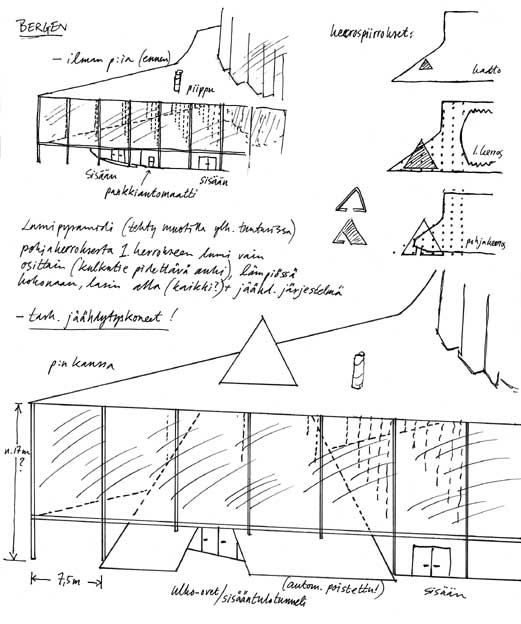 BERGEN
– ilman p:ia (ennen)
piippu
sisään
sisään
pankkiautomaatti
kerrospiirrokset:
katto
1. kerros
pohjakerros
Lumipyramidi (tehty muotilla ylh. tunturissa)
pohjakerroksesta 1. kerrokseen lumi vain
osittain (kulkutie pidettävä auki), lämpiössä
kokonaan, lasin alla (kaikki?) + jäähd. järjestelmä
– tark. jäähdytyskoneet!
p:n kanssa
n. 17m
?
7,5m
ulko-ovet/sisääntulotunneli
(autom. poistettu!)
sisään